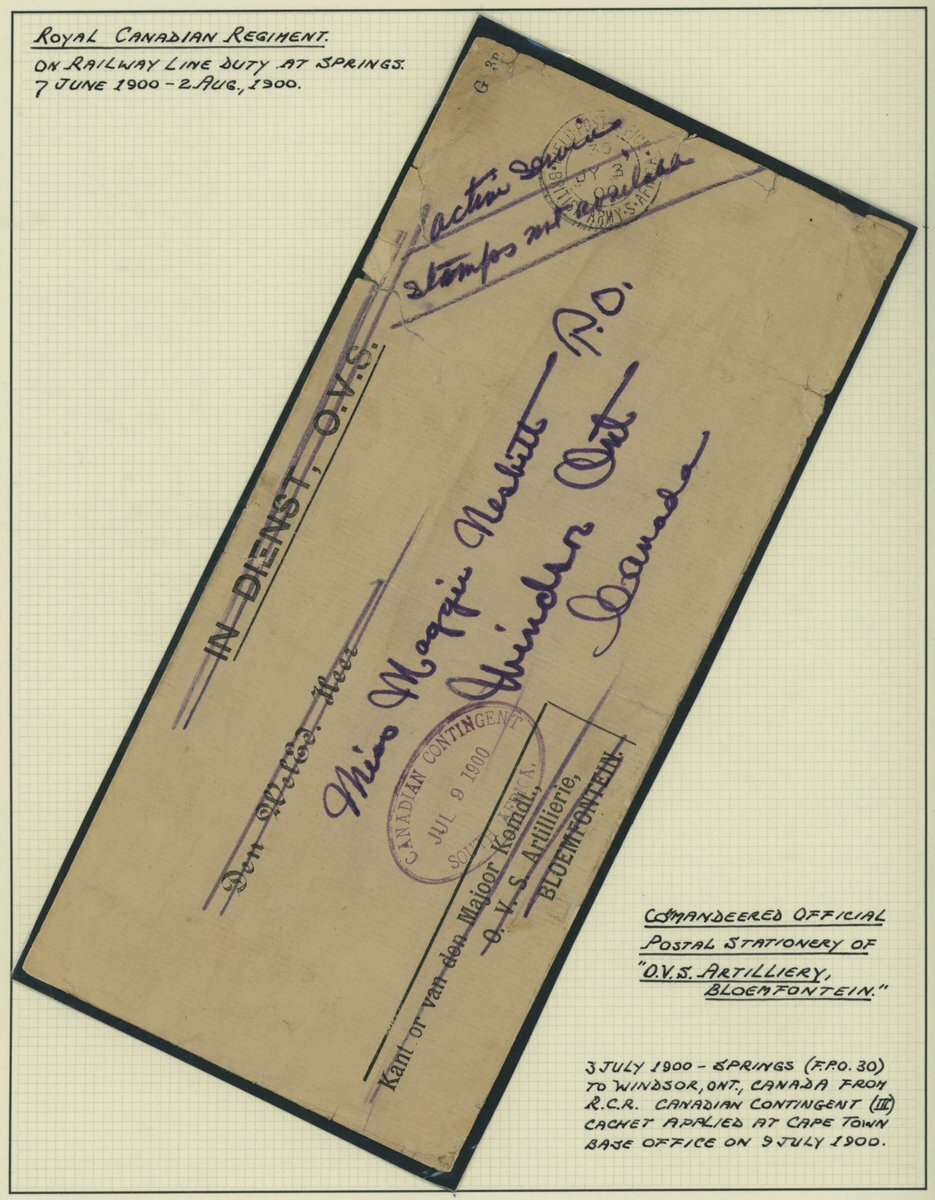 ROYAL CANADIAN REGIMENT.
ON RAILWAY LINE DUTY AT SPRINGS.
7 JUNE 1900 – 2 AUG., 1900.
G 3r
FIELD POST OFFICE
30
JY 3
00
BRITISH ARMY S. AFRICA
Active Service
Stamps not available
IN DIENST, O.V.S.
Den WelEd. Heer
Miss Maggie Nesbitt P.O.
Windsor Ont
Canada
CANADIAN CONTINGENT
JUL 9 1900
SOUTH AFRICA.
Kant or van den Majoor Komdt.,
O. V. S. Artillerie,
BLOEMFONTEIN.
COMANDEERED OFFICIAL
POSTAL STATIONERY OF
"O.V.S. ARTILLIERY,
BLOEMFONTEIN."
3 JULY 1900 – SPRINGS (F.P.O. 30)
TO WINDSOR, ONT., CANADA FROM
R.C.R. CANADIAN CONTINGENT (III)
CACHET APPLIED AT CAPE TOWN
BASE OFFICE ON 9 JULY 1900.